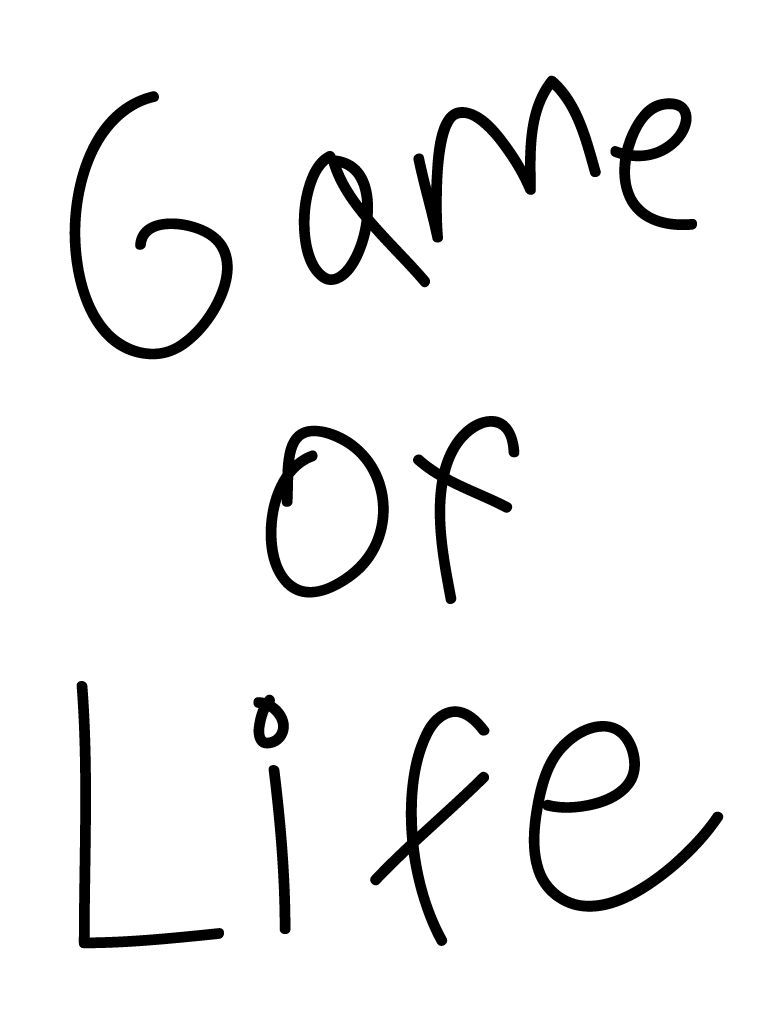 Game
of
Life